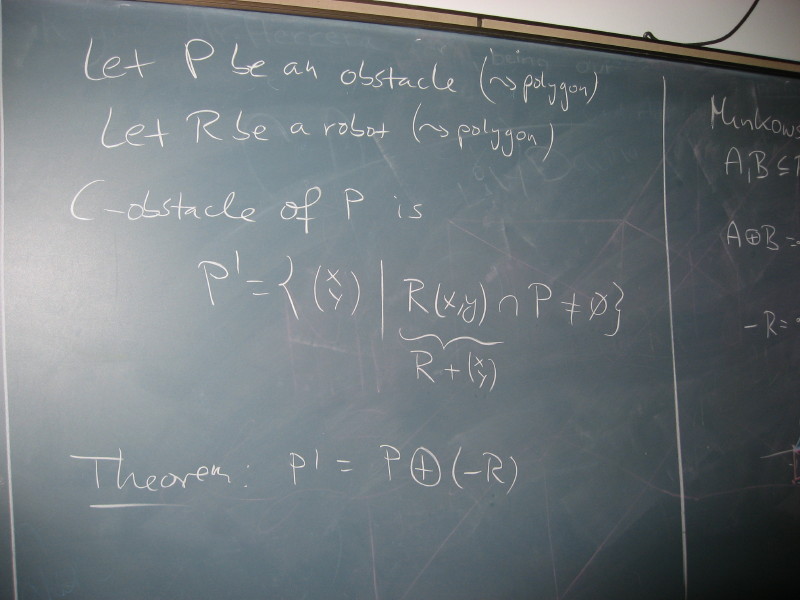 Let P be an obstacle (⇝ polygon)
Let R be a robot (⇝ polygon)
C-obstacle of P is
P' = { (x y) | R(x,y) ∩ P ≠ ∅ }
R + (x y)
Theorem: P' = P ⊕ (-R)
Minkows
A,B ⊆
A⊕B =
-R =